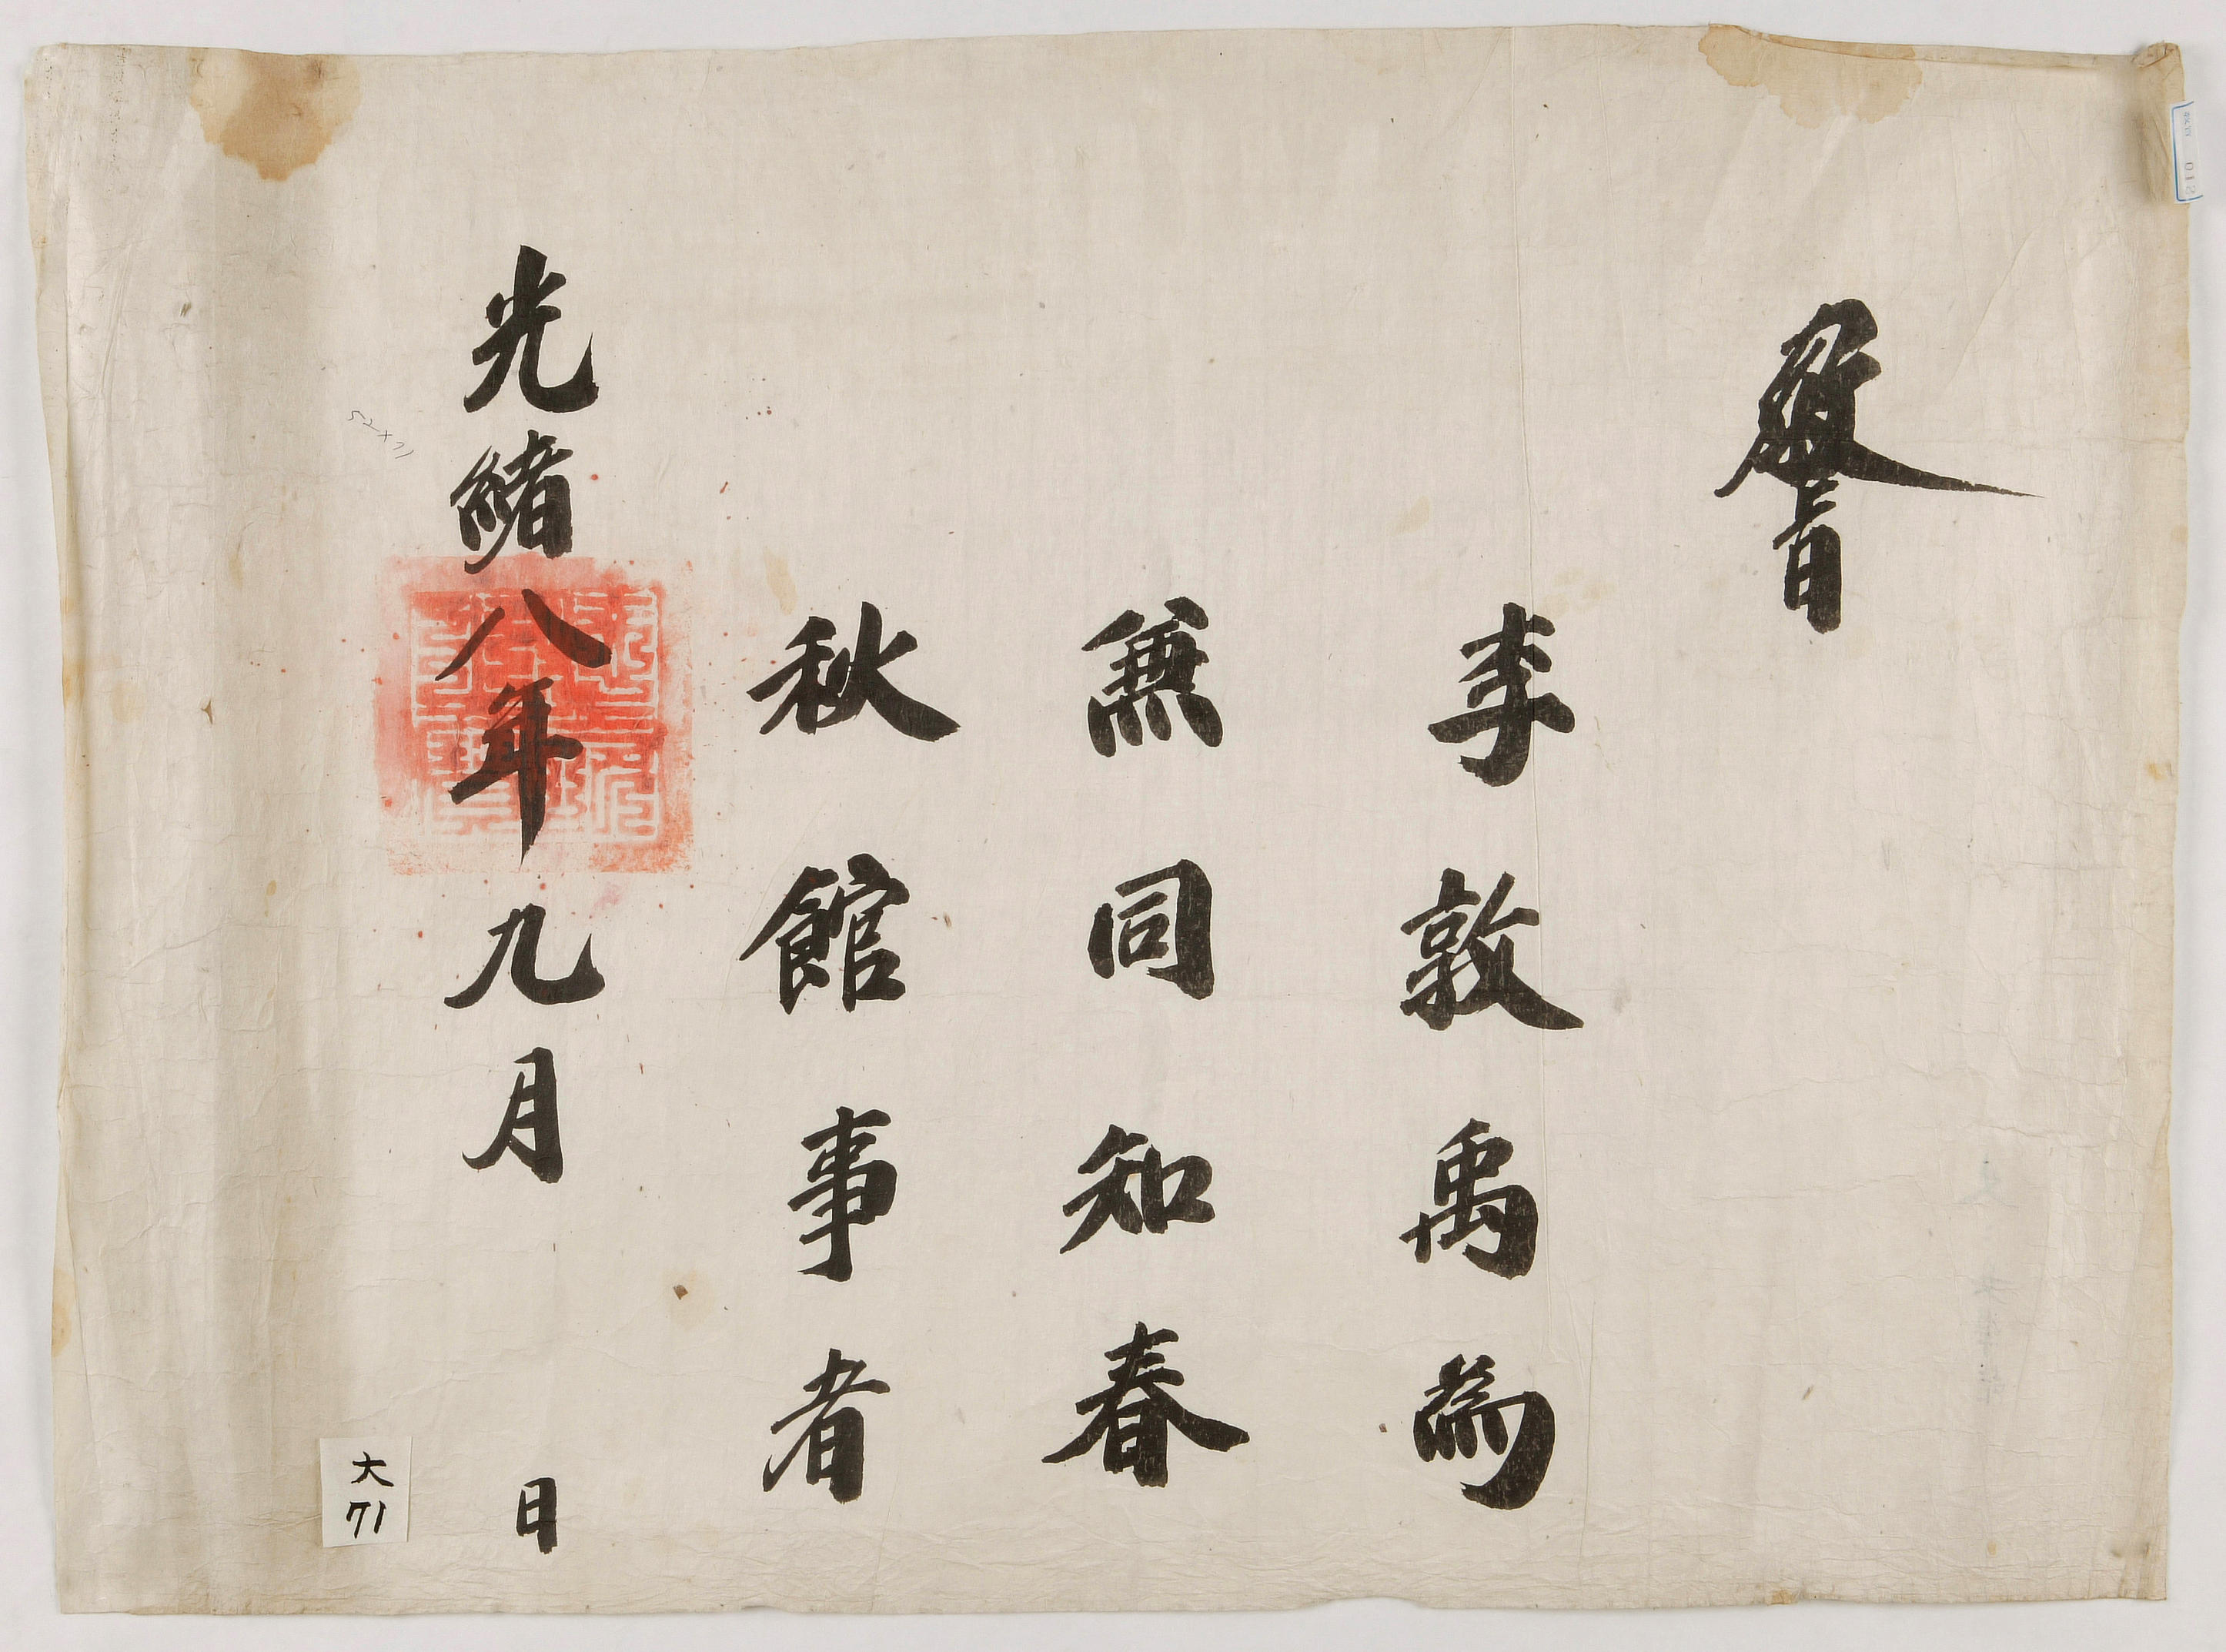 敎旨
李敦禹爲
兼同知春
秋館事者
光緖八年九月 日
52×71
大
71
012